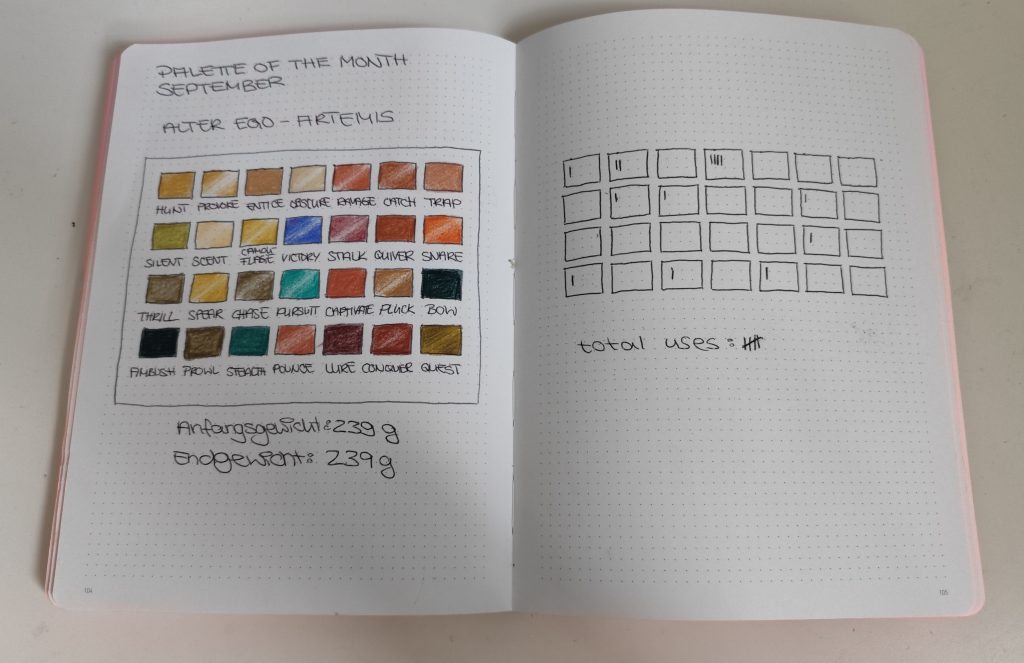 PALETTE OF THE MONTH
SEPTEMBER
ALTER EGO - ARTEMIS
HUNT PROVOKE ENTICE OBSCURE RAMAGE CATCH TRAP
SILENT SCENT CAMOU-FLAGE VICTORY STALK QUIVER SNARE
THRILL SPEAR CHASE PURSUIT CAPTIVATE PLUCK BOW
AMBUSH PROWL STEALTH POUNCE LURE CONQUER QUEST
Anfangsgewicht: 239 g
Endgewicht: 239 g
104
total uses:
105